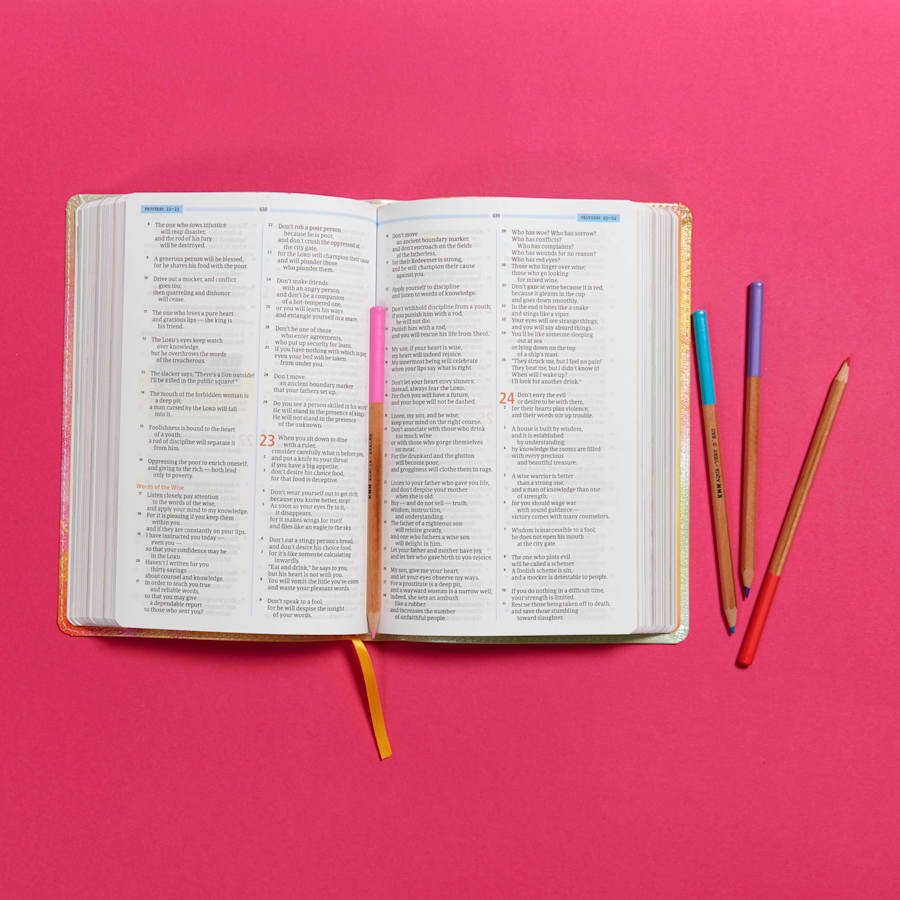 PROVERBS 22–23
638
8 The one who sows injustice
will reap disaster,
and the rod of his fury
will be destroyed.
9 A generous person will be blessed,
for he shares his food with the poor.
10 Drive out a mocker, and conflict
goes too;
then quarreling and dishonor
will cease.
11 The one who loves a pure heart
and gracious lips — the king is
his friend.
12 The LORD's eyes keep watch
over knowledge,
but he overthrows the words
of the treacherous.
13 The slacker says, "There's a lion outside!
I'll be killed in the public square!"
14 The mouth of the forbidden woman is
a deep pit;
a man cursed by the LORD will fall
into it.
15 Foolishness is bound to the heart
of a youth;
a rod of discipline will separate it
from him.
16 Oppressing the poor to enrich oneself,
and giving to the rich — both lead
only to poverty.
Words of the Wise
17 Listen closely, pay attention
to the words of the wise,
and apply your mind to my knowledge.
18 For it is pleasing if you keep them
within you
and if they are constantly on your lips.
19 I have instructed you today —
even you —
so that your confidence may be
in the LORD.
20 Haven't I written for you
thirty sayings
about counsel and knowledge,
21 in order to teach you true
and reliable words,
so that you may give
a dependable report
to those who sent you?
22 Don't rob a poor person
because he is poor,
and don't crush the oppressed at
the city gate,
23 for the LORD will champion their cause
and will plunder those
who plunder them.
24 Don't make friends
with an angry person,
and don't be a companion
of a hot-tempered one,
25 or you will learn his ways
and entangle yourself in a snare.
26 Don't be one of those
who enter agreements,
who put up security for loans.
27 If you have nothing with which to pay,
even your bed will be taken
from under you.
28 Don't move
an ancient boundary marker
that your fathers set up.
29 Do you see a person skilled in his work?
He will stand in the presence of kings.
He will not stand in the presence
of the unknown.
23 When you sit down to dine
with a ruler,
consider carefully what is before you,
2 and put a knife to your throat
if you have a big appetite;
3 don't desire his choice food,
for that food is deceptive.
4 Don't wear yourself out to get rich;
because you know better, stop!
5 As soon as your eyes fly to it,
it disappears,
for it makes wings for itself
and flies like an eagle to the sky.
6 Don't eat a stingy person's bread,
and don't desire his choice food,
7 for it's like someone calculating
inwardly.
"Eat and drink," he says to you,
but his heart is not with you.
8 You will vomit the little you've eaten
and waste your pleasant words.
9 Don't speak to a fool,
for he will despise the insight
of your words.
639
PROVERBS 23–24
10 Don't move
an ancient boundary marker,
and don't encroach on the fields
of the fatherless,
11 for their Redeemer is strong,
and he will champion their cause
against you.
12 Apply yourself to discipline
and listen to words of knowledge.
13 Don't withhold discipline from a youth;
if you punish him with a rod,
he will not die.
14 Punish him with a rod,
and you will rescue his life from Sheol.
15 My son, if your heart is wise,
my heart will indeed rejoice.
16 My innermost being will celebrate
when your lips say what is right.
17 Don't let your heart envy sinners;
instead, always fear the LORD.
18 For then you will have a future,
and your hope will not be dashed.
19 Listen, my son, and be wise;
keep your mind on the right course.
20 Don't associate with those who drink
too much wine
or with those who gorge themselves
on meat.
21 For the drunkard and the glutton
will become poor,
and grogginess will clothe them in rags.
22 Listen to your father who gave you life,
and don't despise your mother
when she is old.
23 Buy — and do not sell — truth,
wisdom, instruction,
and understanding.
24 The father of a righteous son
will rejoice greatly,
and one who fathers a wise son
will delight in him.
25 Let your father and mother have joy,
and let her who gave birth to you rejoice.
26 My son, give me your heart,
and let your eyes observe my ways.
27 For a prostitute is a deep pit,
and a wayward woman is a narrow well;
28 indeed, she sets an ambush
like a robber
and increases the number
of unfaithful people.
29 Who has woe? Who has sorrow?
Who has conflicts?
Who has complaints?
Who has wounds for no reason?
Who has red eyes?
30 Those who linger over wine;
those who go looking
for mixed wine.
31 Don't gaze at wine because it is red,
because it gleams in the cup
and goes down smoothly.
32 In the end it bites like a snake
and stings like a viper.
33 Your eyes will see strange things,
and you will say absurd things.
34 You'll be like someone sleeping
out at sea
or lying down on the top
of a ship's mast.
35 "They struck me, but I feel no pain!
They beat me, but I didn't know it!
When will I wake up?
I'll look for another drink."
24 Don't envy the evil
or desire to be with them,
2 for their hearts plan violence,
and their words stir up trouble.
3 A house is built by wisdom,
and it is established
by understanding;
4 by knowledge the rooms are filled
with every precious
and beautiful treasure.
5 A wise warrior is better
than a strong one,
and a man of knowledge than one
of strength;
6 for you should wage war
with sound guidance —
victory comes with many counselors.
7 Wisdom is inaccessible to a fool;
he does not open his mouth
at the city gate.
8 The one who plots evil
will be called a schemer.
9 A foolish scheme is sin,
and a mocker is detestable to people.
10 If you do nothing in a difficult time,
your strength is limited.
11 Rescue those being taken off to death,
and save those stumbling
toward slaughter.